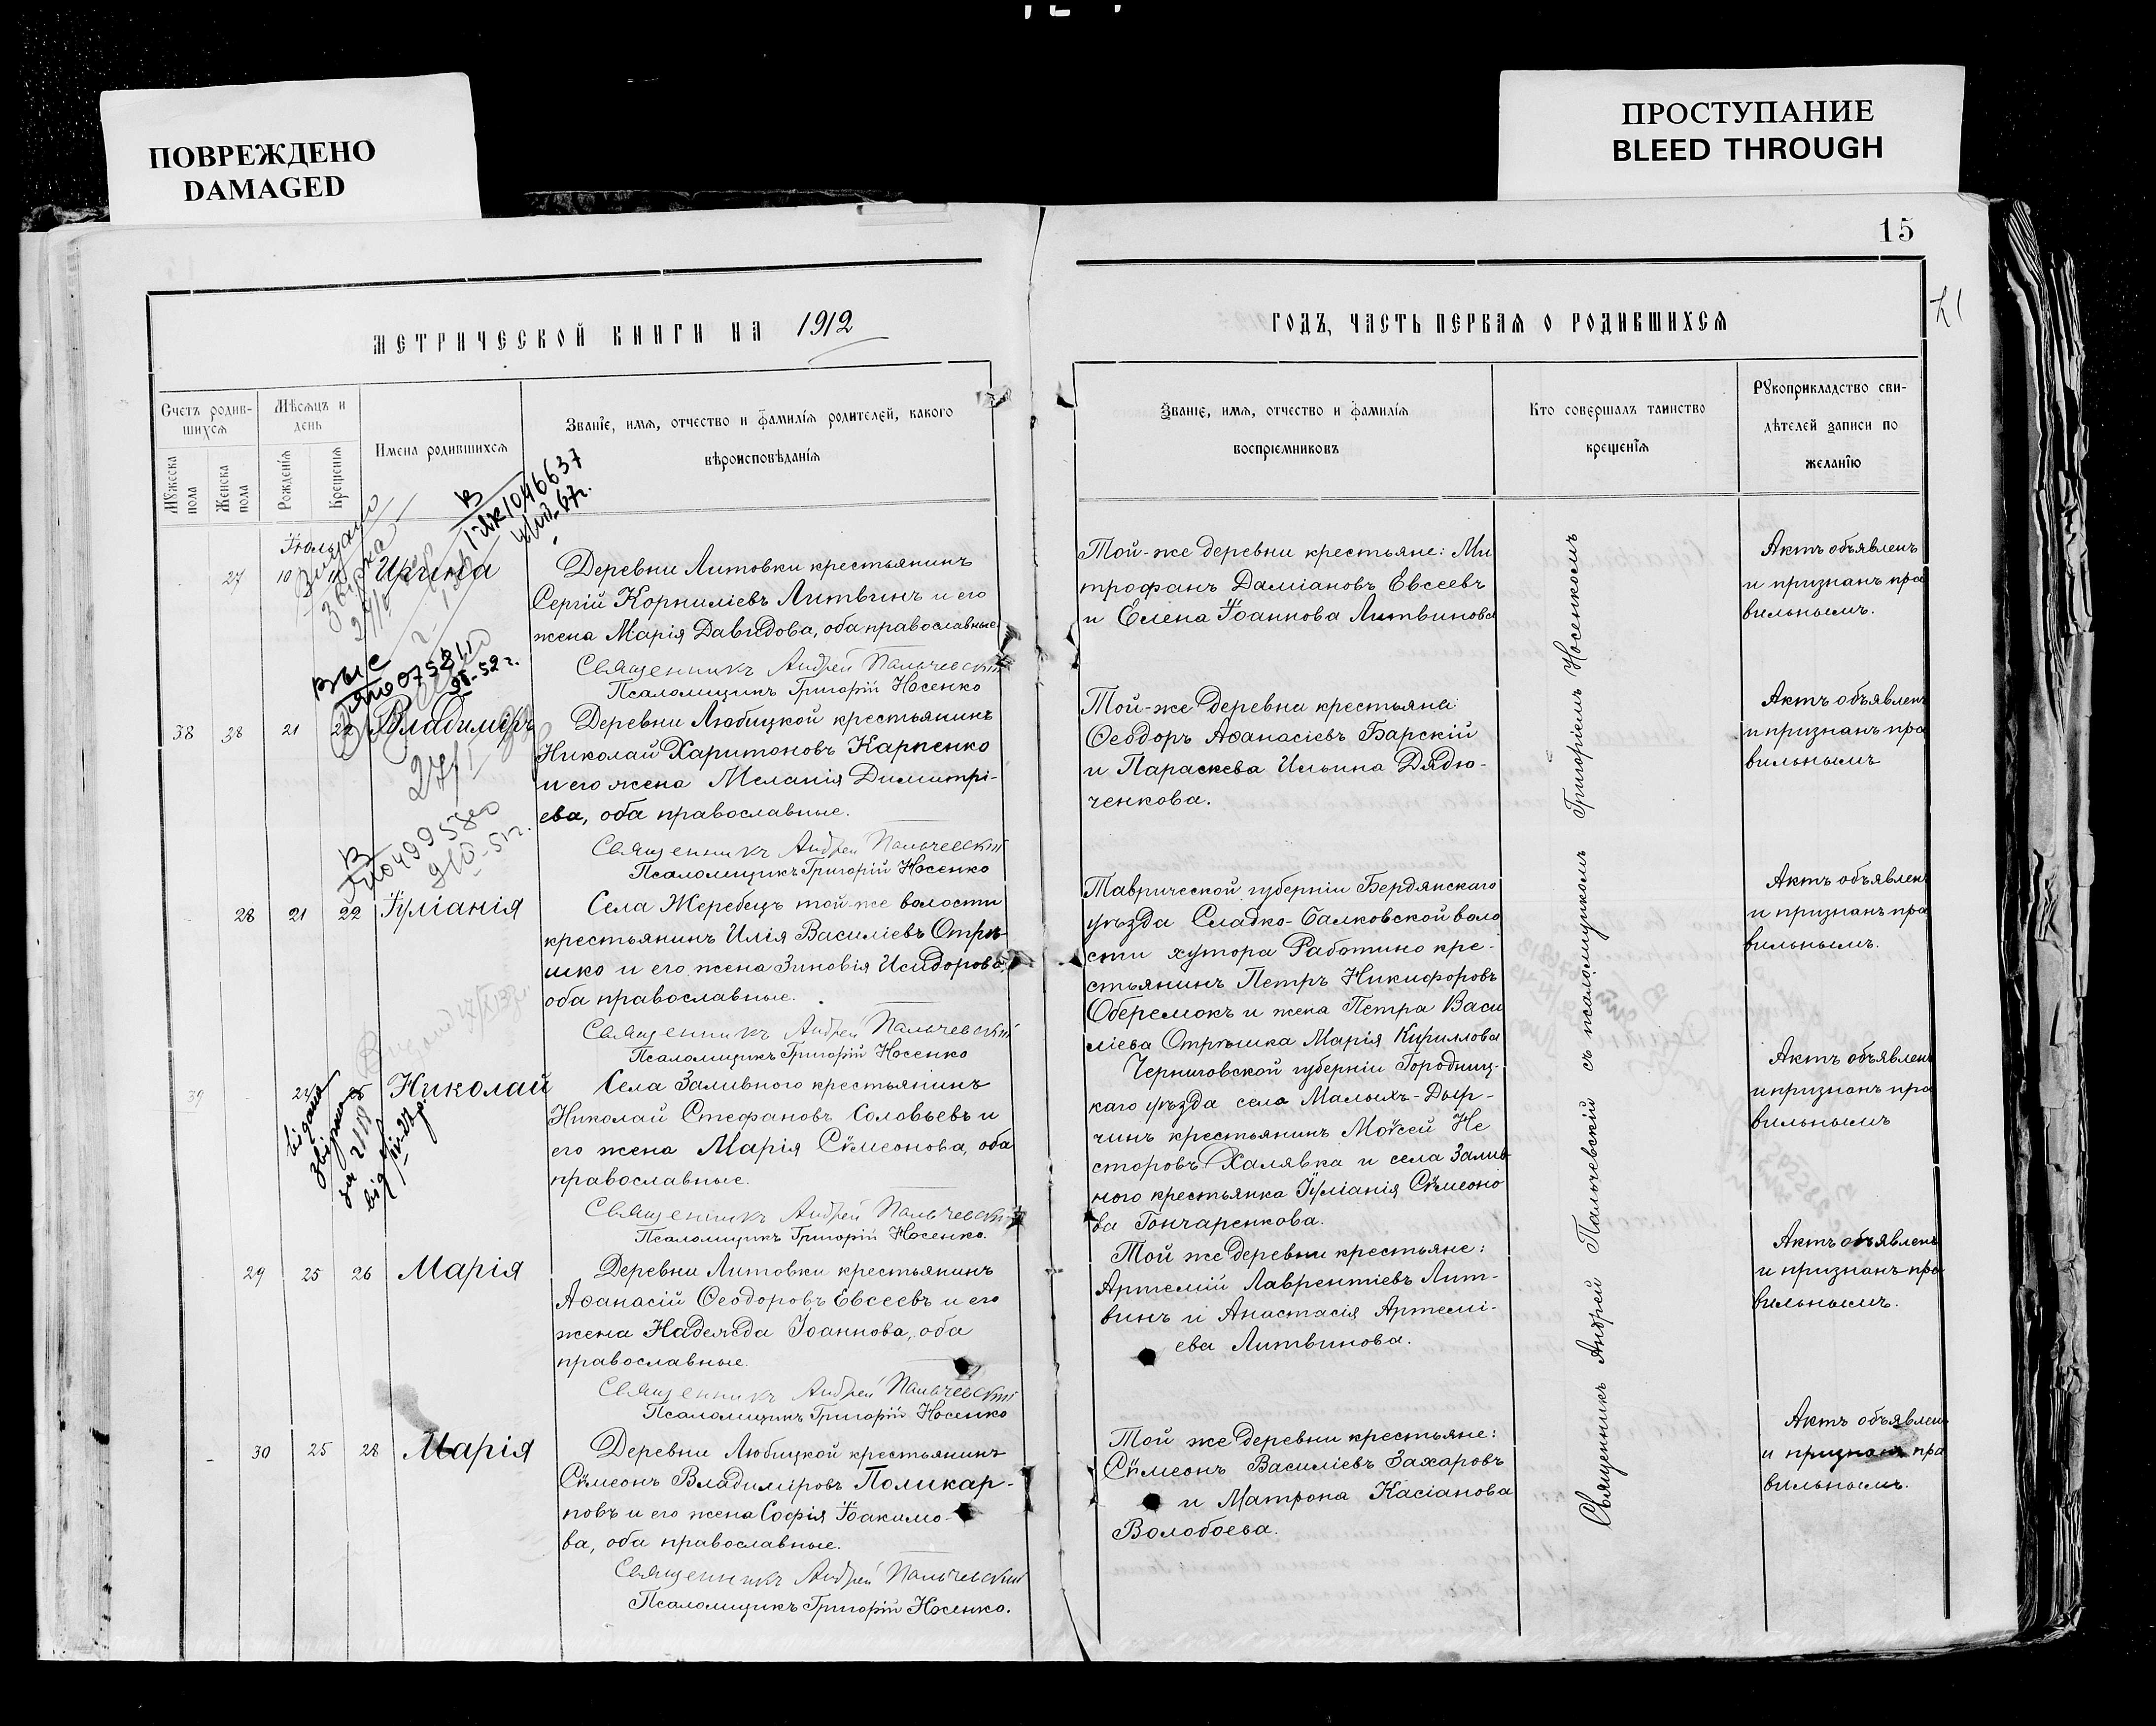 ПОВРЕЖДЕНО
DAMAGED
ПРОСТУПАНИЕ
BLEED THROUGH
15
МЕТРИЧЕСКОЙ КНИГИ НА 1912
ГОДЪ, ЧАСТЬ ПЕРВАЯ О РОДИВШИХСЯ
Счетъ родив-
шихся
Мужеска пола
Женска пола
Мѣсяцъ и
день
Рожденія
Крещенія
Имена родившихся
Званіе, имя, отчество и фамилія родителей, какого
вѣроисповѣданія
Званіе, имя, отчество и фамилія
воспріемниковъ
Кто совершалъ таинство
крещенія
Рукоприкладство сви-
дѣтелей записи по
желанію
Іюль
27 10
Деревни Литовки крестьянинъ
Сергій Корниліевъ Литвинъ и его
жена Марія Давидова, оба православные
Священникъ Андрей Пальчевскій
Псаломщикъ Григорій Носенко
Той-же деревни крестьяне: Ми
трофанъ Даміановъ Евсеевъ
и Елена Іоаннова Литвинова
Актъ объявленъ
и признанъ пра
вильнымъ.
38 38 21 22 Владиміръ
Деревни Любицкой крестьянинъ
Николай Харитоновъ Карпенко
и его жена Меланія Димитрі-
ева, оба православные.
Священникъ Андрей Пальчевскій
Псаломщикъ Григорій Носенко
Той-же деревни крестьяне:
Ѳеодоръ Аѳанасіевъ Барскій
и Параскева Ильина Дядю-
ченкова.
Актъ объявленъ
и признанъ пра
вильнымъ
28 21 22 Іуліанія
Села Жеребецъ той-же волости
крестьянинъ Илія Василіевъ Отрѣ-
шко и его жена Зиновія Исидорова,
оба православные.
Священникъ Андрей Пальчевскій
Псаломщикъ Григорій Носенко
Таврической губерніи Бердянскаго
уѣзда Сладко-Балковской воло
сти хутора Работино кре-
стьянинъ Петръ Никифоровъ
Оберемокъ и жена Петра Васи
ліева Отрѣшка Марія Кириллова
Актъ объявленъ
и признанъ пра
вильнымъ.
39 Николай
Села Заливного крестьянинъ
Николай Стефановъ Соловьевъ и
его жена Марія Сѵмеонова, оба
православные.
Священникъ Андрей Пальчевскій
Псаломщикъ Григорій Носенко.
Черниговской губерніи Городниц-
каго уѣзда села Малыхъ-Дыр-
чинъ крестьянинъ Моѵсей Не
сторовъ Халявка и села Залив
ного крестьянка Іуліанія Сѵмеоно
ва Гончаренкова.
Актъ объявленъ
и признанъ пра
вильнымъ
29 25 26 Марія
Деревни Литовки крестьянинъ
Аѳанасій Ѳеодоровъ Евсеевъ и его
жена Надежда Іоаннова, оба
православные.
Священникъ Андрей Пальчевскій
Псаломщикъ Григорій Носенко
Той же деревни крестьяне:
Артемій Лаврентіевъ Лит-
винъ и Анастасія Артемі-
ева Литвинова.
Актъ объявленъ
и признанъ пра
вильнымъ.
30 25 28 Марія
Деревни Любицкой крестьянинъ
Сѵмеонъ Владиміровъ Поликар-
повъ и его жена Софія Іоакимо-
ва, оба православные.
Священникъ Андрей Пальчевскій
Псаломщикъ Григорій Носенко.
Той же деревни крестьяне:
Сѵмеонъ Василіевъ Захаровъ
и Матрона Касіанова
Волобоева.
Актъ объявленъ
и признанъ пра
вильнымъ.
Священникъ Андрей Пальчевскій съ псаломщикомъ Григоріемъ Носенкомъ